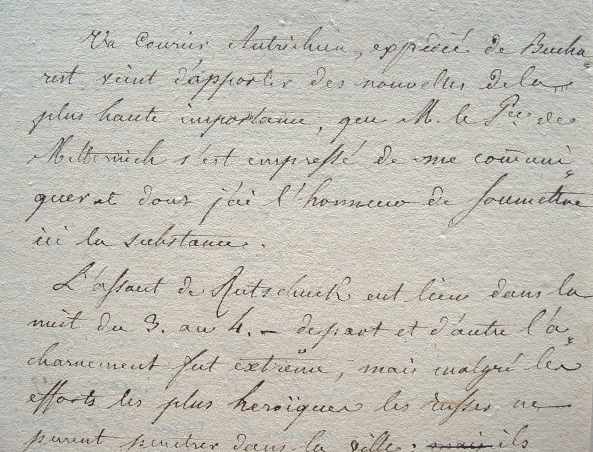 Un Courier Autrichien, expédié de Bucha-
rest, vient d'apporter des nouvelles de la
plus haute importance, que M. le Pce de
Metternich s'est empressé de me communi-
quer et dont j'ai l'honneur de soumettre
ici la substance.
L'assaut de Rutschuck eut lieu dans la
nuit du 3. au 4. — de part et d'autre l'a-
charnement fut extrême, mais malgré les
efforts les plus heroïques les russes ne
purent pénétrer dans la ville; mais ils